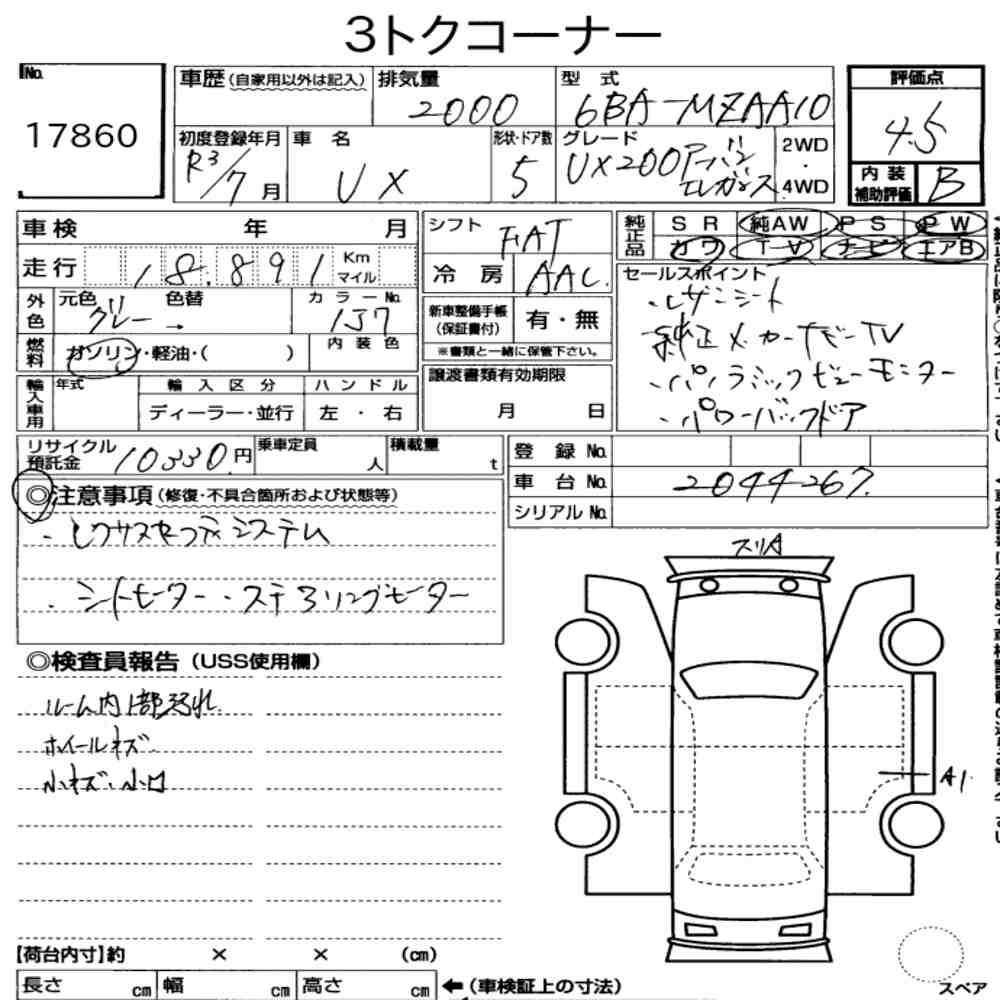 3トクコーナー
No.
17860
車歴(自家用以外は記入)
排気量
2000
型 式
6BA-MZAA10
評価点
4.5
初度登録年月
R3/7月
車 名
UX
形状・ドア数
5
グレード
UX200アーバン
エレガンス
2WD
・
4WD
内 装
補助評価
B
車検 年 月
シフト
FAT
純正品
SR 純AW PS PW
カワ TV ナビ エアB
走行 18.891 Km
マイル
冷 房 AAC
セールスポイント
・レザーシート
・純正メーカーナビーTV
・パノラミックビューモニター
・パワーバックドア
外色
元色 グレー
色替
→
カラーNo.
137
新車整備手帳
(保証書付)
有・無
※書類と一緒に保管下さい。
燃料
ガソリン・軽油・( )
内装色
輸入車用
年式
輸入区分
ハンドル
ディーラー・並行
左 ・ 右
譲渡書類有効期限
月 日
リサイクル
預託金
10330円
乗車定員
人
積載量
t
登 録 No.
車 台 No. 2044267
シリアル No.
◎注意事項(修復・不具合箇所および状態等)
・レクサスセーフティシステム
・シートヒーター・ステアリングヒーター
◎検査員報告(USS使用欄)
ルーム内1部汚れ
ホイールキズ
小キズ・小凹
スリA
A1
【荷台内寸】約 × × (cm)
長さ cm 幅 cm 高さ cm
←(車検証上の寸法)
スペア